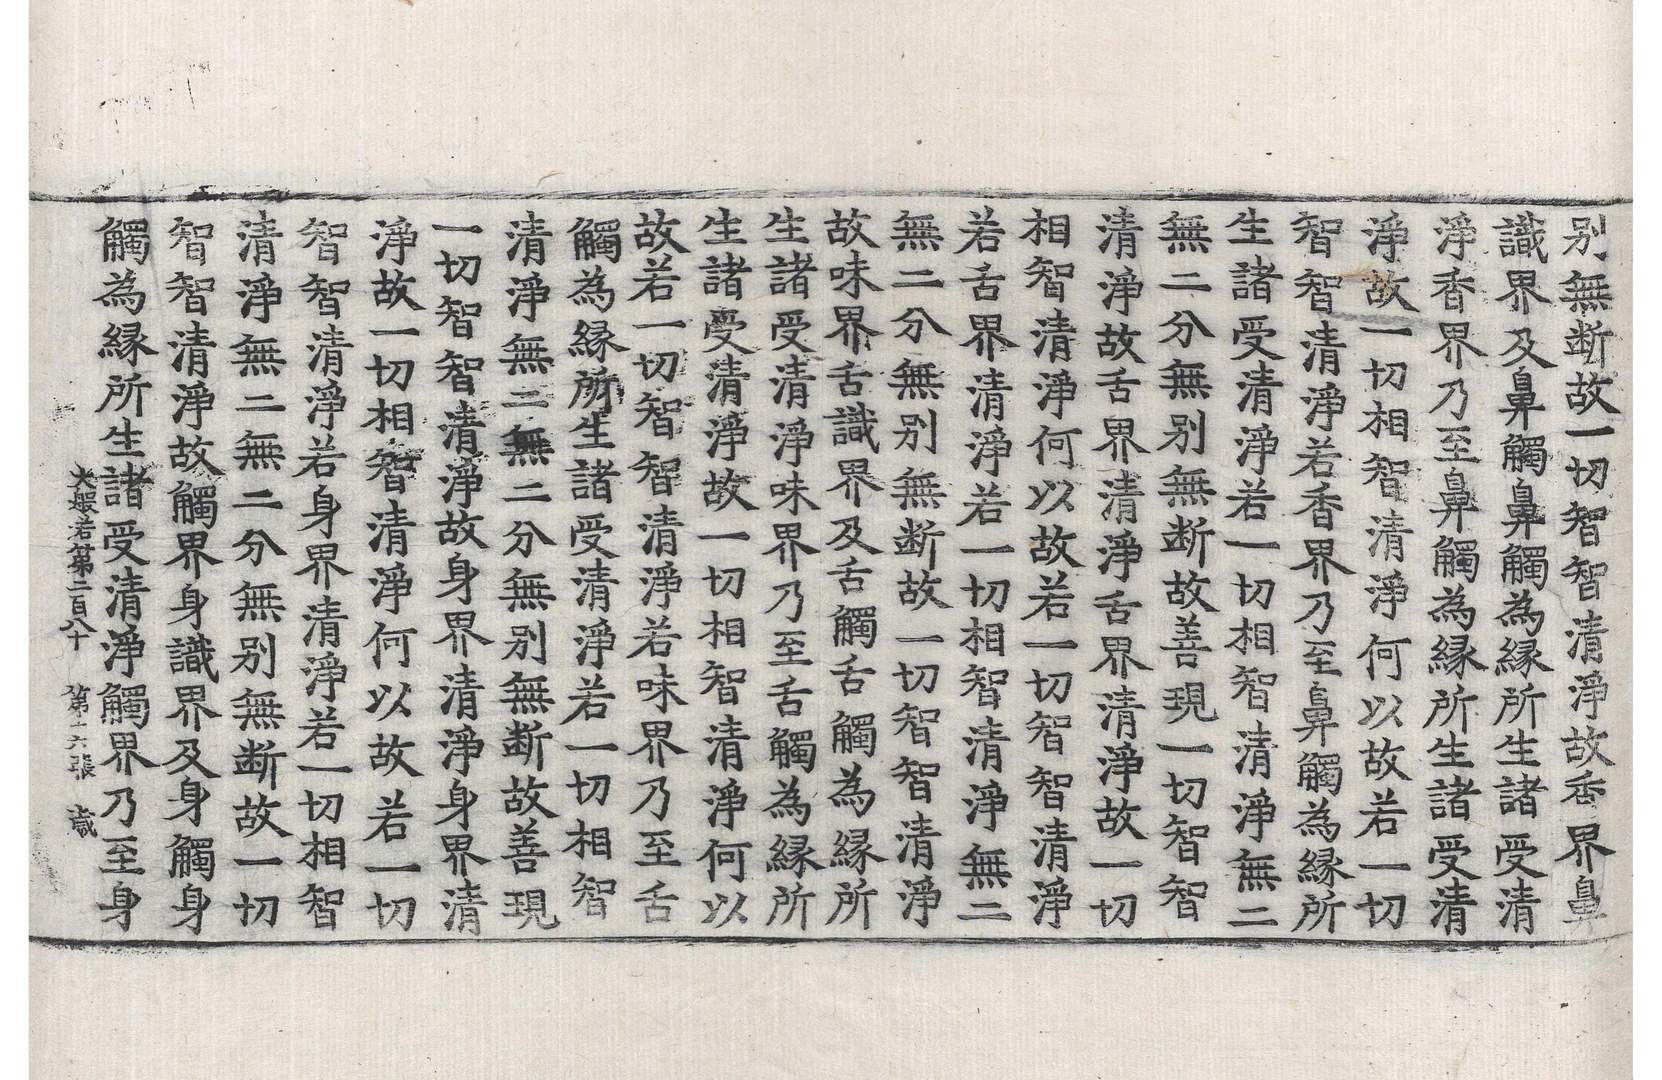 別無断故一切智智清淨故香界鼻
識界及鼻觸鼻觸為縁所生諸受清
淨香界乃至鼻觸為縁所生諸受清
淨故一切相智清淨何以故若一切
智智清淨若香界乃至鼻觸為縁所
生諸受清淨若一切相智清淨無二
無二分無別無断故善現一切智智
清淨故舌界清淨舌界清淨故一切
相智清淨何以故若一切智智清淨
若舌界清淨若一切相智清淨無二
無二分無別無断故一切智智清淨
故味界舌識界及舌觸舌觸為縁所
生諸受清淨味界乃至舌觸為縁所
生諸受清淨故一切相智清淨何以
故若一切智智清淨若味界乃至舌
觸為縁所生諸受清淨若一切相智
清淨無二無二分無別無断故善現
一切智智清淨故身界清淨身界清
淨故一切相智清淨何以故若一切
智智清淨若身界清淨若一切相智
清淨無二無二分無別無断故一切
智智清淨故觸界身識界及身觸身
觸為縁所生諸受清淨觸界乃至身
大般若第二百八十 第十六張 歳